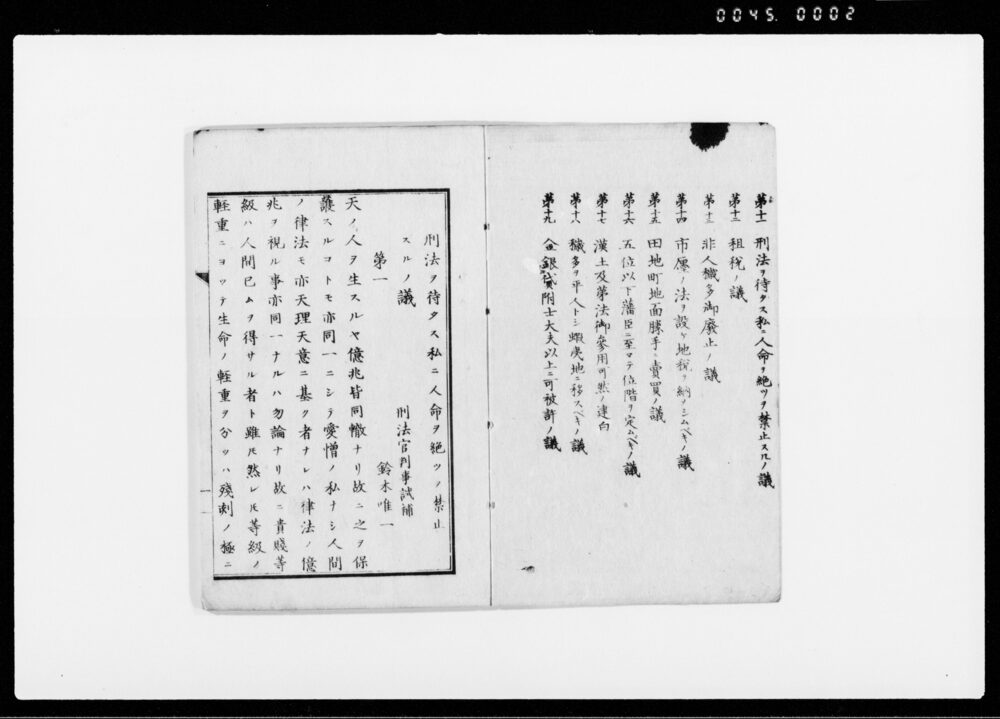 0045. 0002
第十一 刑法ヲ待タス私ニ人命ヲ絶ツヲ禁止スルノ議
第十二 租税ノ議
第十三 非人穢多御廃止ノ議
第十四 市廛ノ法ヲ設ケ地税ヲ納メシムベキノ議
第十五 田地町地面勝手ニ賣買ノ議
第十六 五位以下藩臣ニ至マテ位階ヲ定ムベキノ議
第十七 漢土及第法御參用可然ノ建白
第十八 穢多ヲ平人トシ蝦夷地ニ移スベキノ議
第十九 金銀貸附士大夫以上ニ可被許ノ議
刑法ヲ待タス私ニ人命ヲ絶ツノ禁止
スルノ議
刑法官判事試補
第一
鈴木唯一
天ノ人ヲ生スルヤ億兆皆同轍ナリ故ニ之ヲ保
護スルコトモ亦同一ニシテ愛憎ノ私ナシ人間
ノ律法モ亦天理天意ニ基ク者ナレハ律法ノ億
兆ヲ視ル事亦同一ナルハ勿論ナリ故ニ貴賤等
級ハ人間已ムヲ得サル者ト雖圧然レ圧等級ノ
軽重ニヨッテ生命ノ軽重ヲ分ツハ殘刻ノ極ニ
一